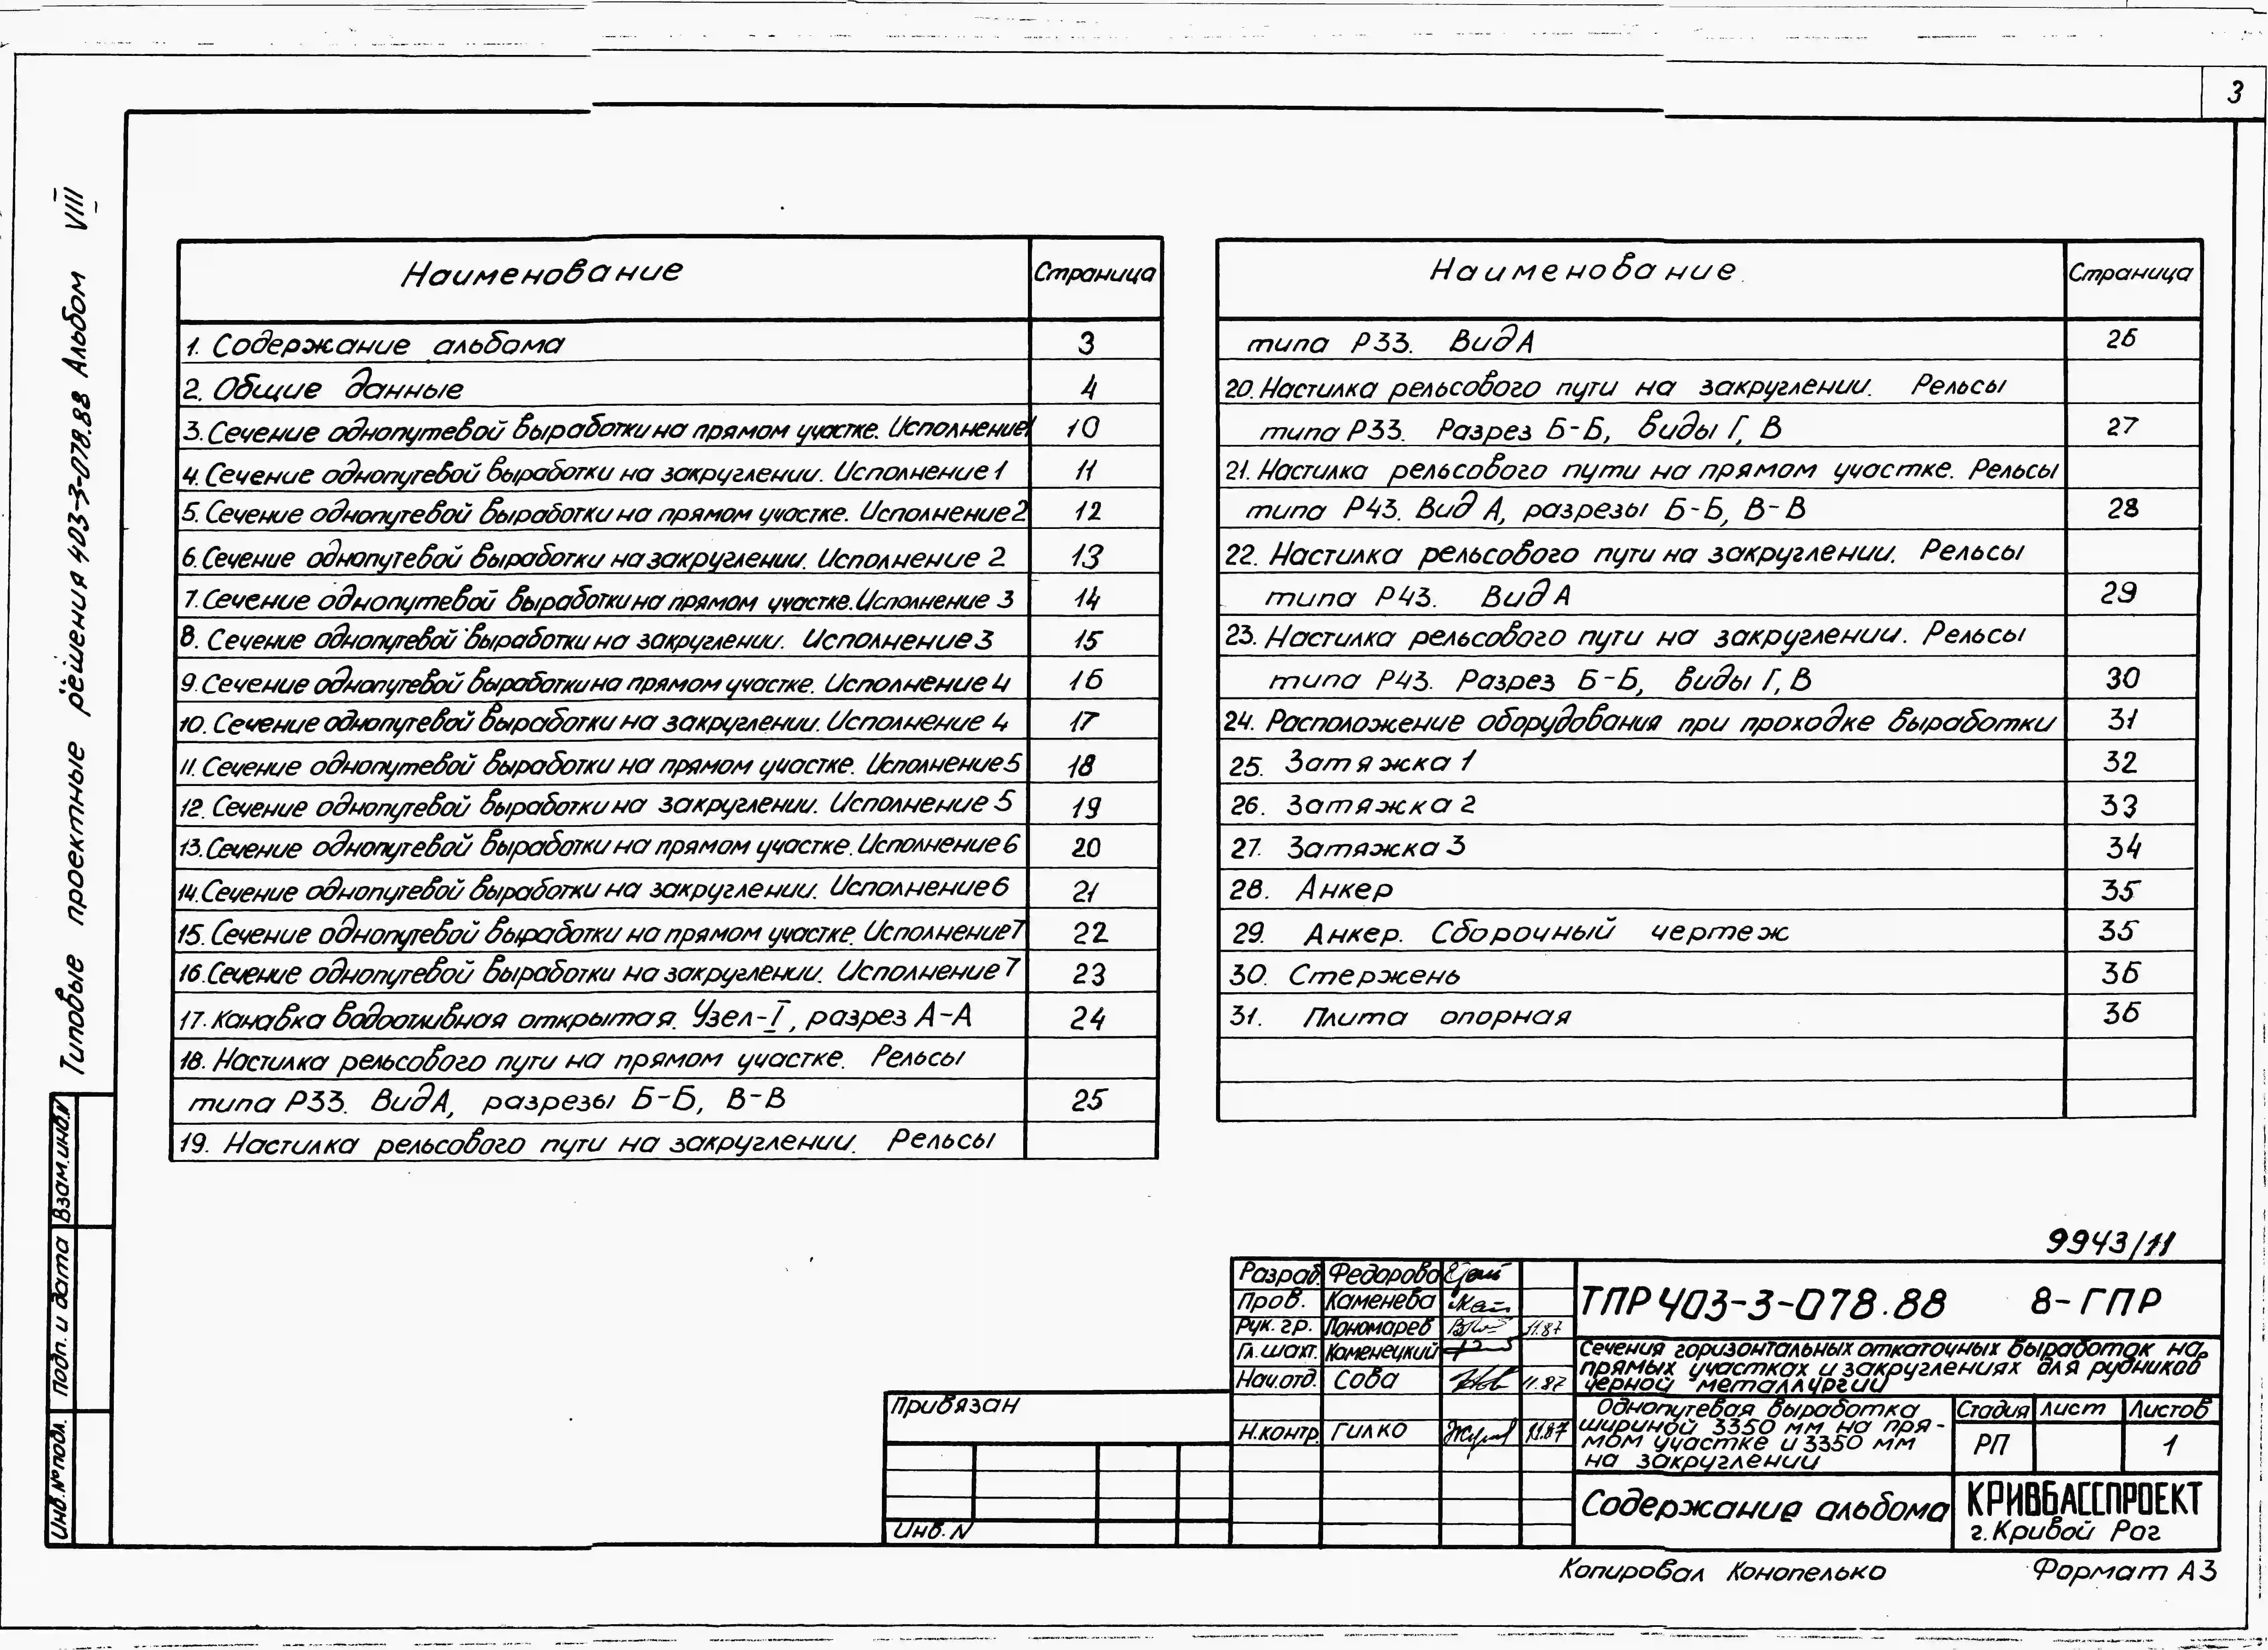 3
Типовые проектные решения 403-3-078.88 Альбом VIII
Наименование Страница
1. Содержание альбома 3
2. Общие данные 4
3. Сечение однопутевой выработки на прямом участке. Исполнение 1 10
4. Сечение однопутевой выработки на закруглении. Исполнение 1 11
5. Сечение однопутевой выработки на прямом участке. Исполнение 2 12
6. Сечение однопутевой выработки на закруглении. Исполнение 2 13
7. Сечение однопутевой выработки на прямом участке. Исполнение 3 14
8. Сечение однопутевой выработки на закруглении. Исполнение 3 15
9. Сечение однопутевой выработки на прямом участке. Исполнение 4 16
10. Сечение однопутевой выработки на закруглении. Исполнение 4 17
11. Сечение однопутевой выработки на прямом участке. Исполнение 5 18
12. Сечение однопутевой выработки на закруглении. Исполнение 5 19
13. Сечение однопутевой выработки на прямом участке. Исполнение 6 20
14. Сечение однопутевой выработки на закруглении. Исполнение 6 21
15. Сечение однопутевой выработки на прямом участке. Исполнение 7 22
16. Сечение однопутевой выработки на закруглении. Исполнение 7 23
17. Канавка водоотливная открытая. Узел-I, разрез А-А 24
18. Настилка рельсового пути на прямом участке. Рельсы
типа Р33. Вид А, разрезы Б-Б, В-В 25
19. Настилка рельсового пути на закруглении. Рельсы
Наименование. Страница
типа Р33. Вид А 26
20. Настилка рельсового пути на закруглении. Рельсы
типа Р33. Разрез Б-Б, виды Г, В 27
21. Настилка рельсового пути на прямом участке. Рельсы
типа Р43. Вид А, разрезы Б-Б, В-В 28
22. Настилка рельсового пути на закруглении. Рельсы
типа Р43. Вид А 29
23. Настилка рельсового пути на закруглении. Рельсы
типа Р43. Разрез Б-Б, виды Г, В 30
24. Расположение оборудования при проходке выработки 31
25. Затяжка 1 32
26. Затяжка 2 33
27. Затяжка 3 34
28. Анкер 35
29. Анкер. Сборочный чертеж 35
30. Стержень 36
31. Плита опорная 36
Взам.инв.N
Подп. и дата
Инв.№ подл.
9943/11
Разраб. Федорова
Пров. Каменева
Рук. гр. Пономарев 11.87
Гл. шахт. Каменецкий
Нач.отд. Сова 11.87
Н.контр. Гилко 11.87
Привязан
Инв. N
ТПР 403-3-078.88 8-ГПР
Сечения горизонтальных откаточных выработок на
прямых участках и закруглениях для рудников
черной металлургии
Однопутевая выработка
шириной 3350 мм на пря-
мом участке и 3350 мм
на закруглении
Стадия Лист Листов
РП 1
Содержание альбома
КРИВБАССПРОЕКТ
г. Кривой Рог
Копировал Конопелько Формат А3